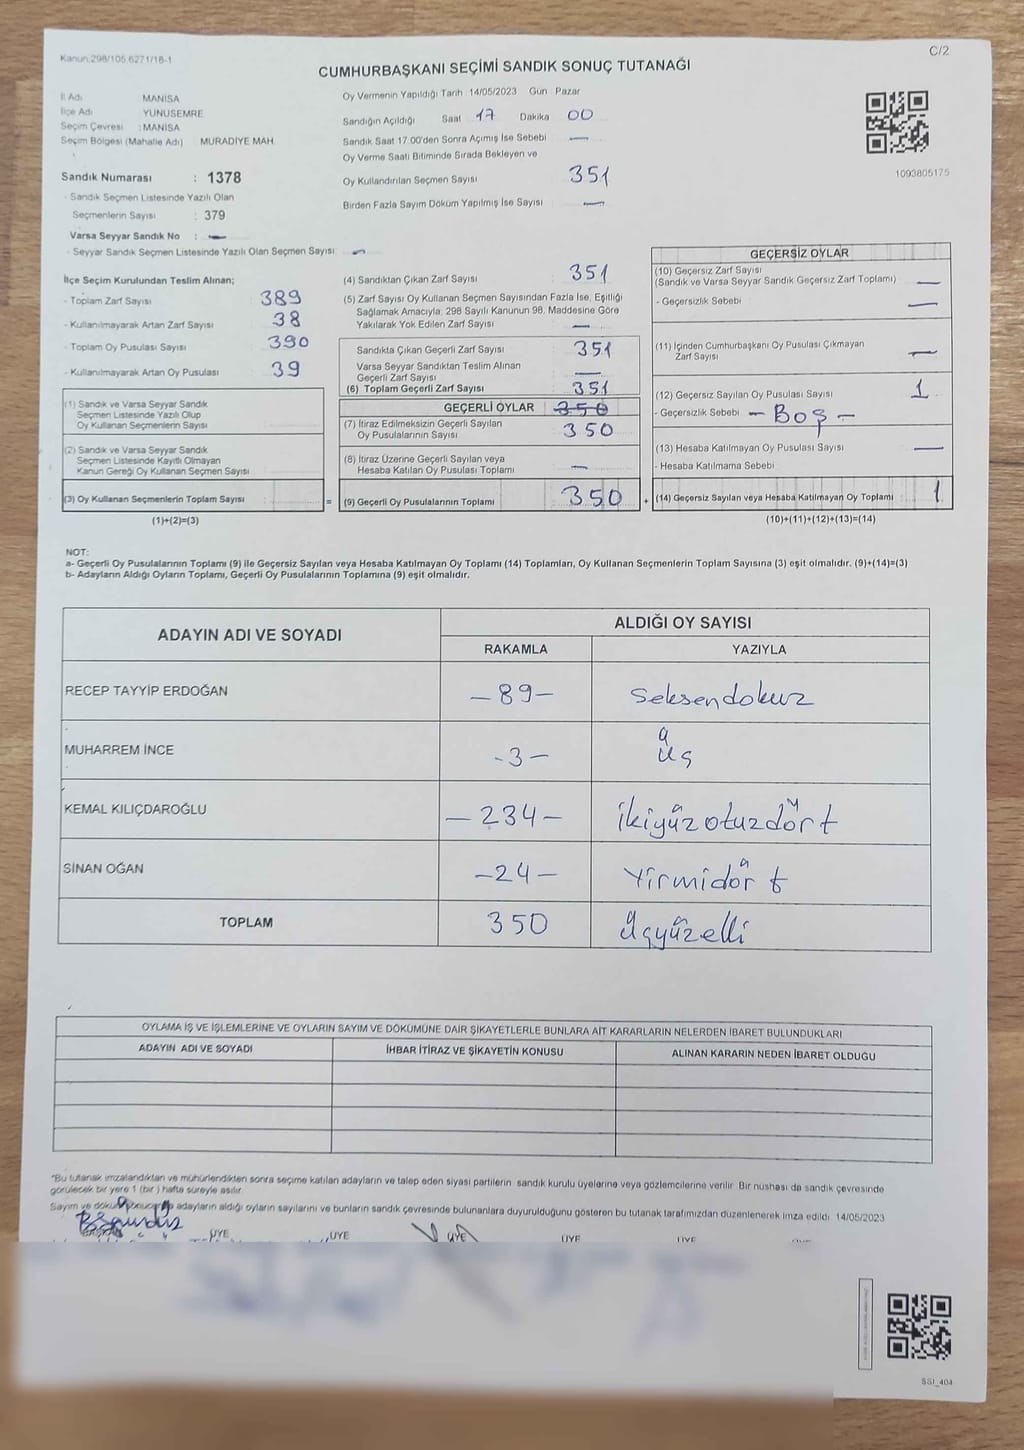 Kanun:298/105,6271/18-1
C/2
CUMHURBAŞKANI SEÇİMİ SANDIK SONUÇ TUTANAĞI
İl Adı MANİSA
İlçe Adı YUNUSEMRE
Seçim Çevresi : MANİSA
Seçim Bölgesi (Mahalle Adı) MURADİYE MAH.
Sandık Numarası : 1378
- Sandık Seçmen Listesinde Yazılı Olan
Seçmenlerin Sayısı : 379
Varsa Seyyar Sandık No : —
- Seyyar Sandık Seçmen Listesinde Yazılı Olan Seçmen Sayısı: —
Oy Vermenin Yapıldığı Tarih 14/05/2023 Gün Pazar
Sandığın Açıldığı Saat 17 Dakika 00
Sandık Saat 17.00'den Sonra Açımış İse Sebebi —
Oy Verme Saati Bitiminde Sırada Bekleyen ve
Oy Kullandırılan Seçmen Sayısı 351
Birden Fazla Sayım Döküm Yapılmış İse Sayısı —
1093805175
İlçe Seçim Kurulundan Teslim Alınan;
- Toplam Zarf Sayısı 389
- Kullanılmayarak Artan Zarf Sayısı 38
- Toplam Oy Pusulası Sayısı 390
- Kullanılmayarak Artan Oy Pusulası 39
(1) Sandık ve Varsa Seyyar Sandık
Seçmen Listesinde Yazılı Olup
Oy Kullanan Seçmenlerin Sayısı
(2) Sandık ve Varsa Seyyar Sandık
Seçmen Listesinde Kayıtlı Olmayan
Kanun Gereği Oy Kullanan Seçmen Sayısı
(3) Oy Kullanan Seçmenlerin Toplam Sayısı =
(1)+(2)=(3)
(4) Sandıktan Çıkan Zarf Sayısı 351
(5) Zarf Sayısı Oy Kullanan Seçmen Sayısından Fazla İse, Eşitliği
Sağlamak Amacıyla; 298 Sayılı Kanunun 98. Maddesine Göre
Yakılarak Yok Edilen Zarf Sayısı —
Sandıkta Çıkan Geçerli Zarf Sayısı 351
Varsa Seyyar Sandıktan Teslim Alınan
Geçerli Zarf Sayısı —
(6) Toplam Geçerli Zarf Sayısı 351
GEÇERLİ OYLAR 350
(7) İtiraz Edilmeksizin Geçerli Sayılan
Oy Pusulalarının Sayısı 350
(8) İtiraz Üzerine Geçerli Sayılan ve
Hesaba Katılan Oy Pusulası Toplamı —
(9) Geçerli Oy Pusulalarının Toplamı 350 +
GEÇERSİZ OYLAR
(10) Geçersiz Zarf Sayısı
(Sandık ve Varsa Seyyar Sandık Geçersiz Zarf Toplamı) —
- Geçersizlik Sebebi —
(11) İçinden Cumhurbaşkanı Oy Pusulası Çıkmayan
Zarf Sayısı —
(12) Geçersiz Sayılan Oy Pusulası Sayısı 1
- Geçersizlik Sebebi — Boş —
(13) Hesaba Katılmayan Oy Pusulası Sayısı —
- Hesaba Katılmama Sebebi
(14) Geçersiz Sayılan veya Hesaba Katılmayan Oy Toplamı : 1
(10)+(11)+(12)+(13)=(14)
NOT:
a- Geçerli Oy Pusulalarının Toplamı (9) ile Geçersiz Sayılan veya Hesaba Katılmayan Oy Toplamı (14) Toplamları, Oy Kullanan Seçmenlerin Toplam Sayısına (3) eşit olmalıdır. (9)+(14)=(3)
b- Adayların Aldığı Oyların Toplamı, Geçerli Oy Pusulalarının Toplamına (9) eşit olmalıdır.
ADAYIN ADI VE SOYADI ALDIĞI OY SAYISI
RAKAMLA YAZIYLA
RECEP TAYYİP ERDOĞAN —89— Seksendokuz
MUHARREM İNCE -3— Üç
KEMAL KILIÇDAROĞLU —234— İkiyüzotuzdört
SİNAN OĞAN —24— Yirmidört
TOPLAM 350 Üçyüzelli
OYLAMA İŞ VE İŞLEMLERİNE VE OYLARIN SAYIM VE DÖKÜMÜNE DAİR ŞİKAYETLERLE BUNLARA AİT KARARLARIN NELERDEN İBARET BULUNDUKLARI
ADAYIN ADI VE SOYADI İHBAR İTİRAZ VE ŞİKAYETİN KONUSU ALINAN KARARIN NEDEN İBARET OLDUĞU
"Bu tutanak imzalandıktan ve mühürlendikten sonra seçime katılan adayların ve talep eden siyasi partilerin sandık kurulu üyelerine veya gözlemcilerine verilir. Bir nüshası da sandık çevresinde
görülecek bir yere 1 (bir) hafta süreyle asılır.
Sayım ve döküm sonucunda adayların aldığı oyların sayılarını ve bunların sandık çevresinde bulunanlara duyurulduğunu gösteren bu tutanak tarafımızdan düzenlenerek imza edildi. 14/05/2023
ÜYE ÜYE ÜYE ÜYE ÜYE
SSI_404